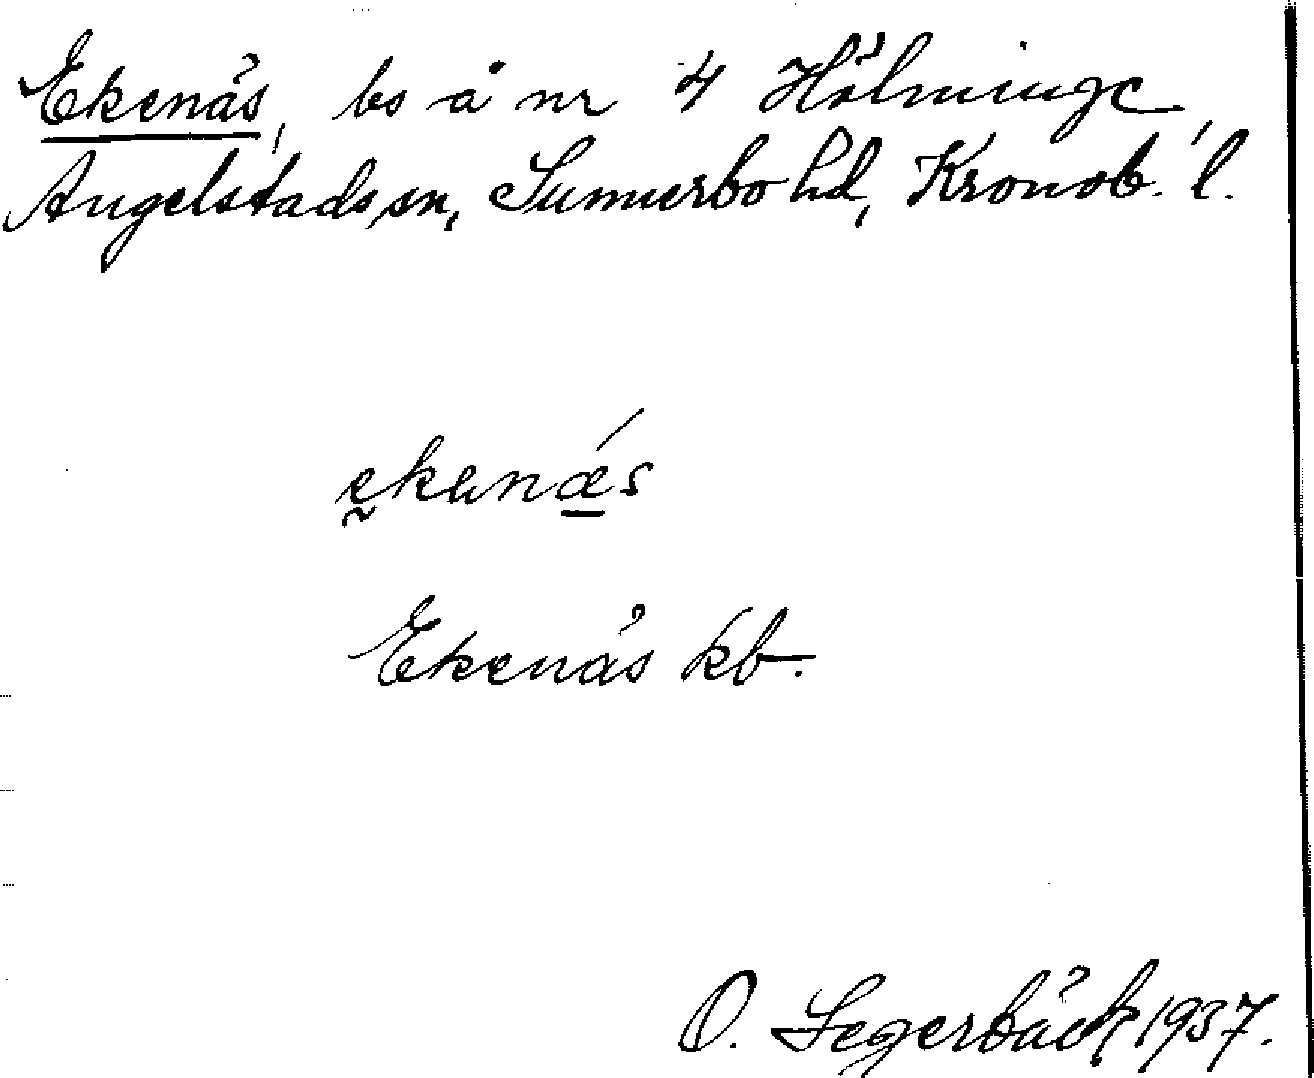 Ekenäs, bs å nr 4 Hölminge,
Angelstads sn, Sunnerbo hd, Kronob. l.
ekenäs
Ekenäs kb.
O. Segerbäck 1937.